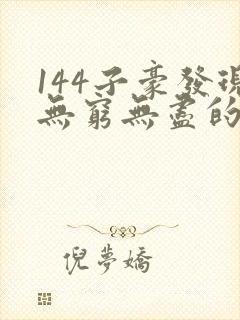 144子豪發現
無窮無盡的
倪夢嬌